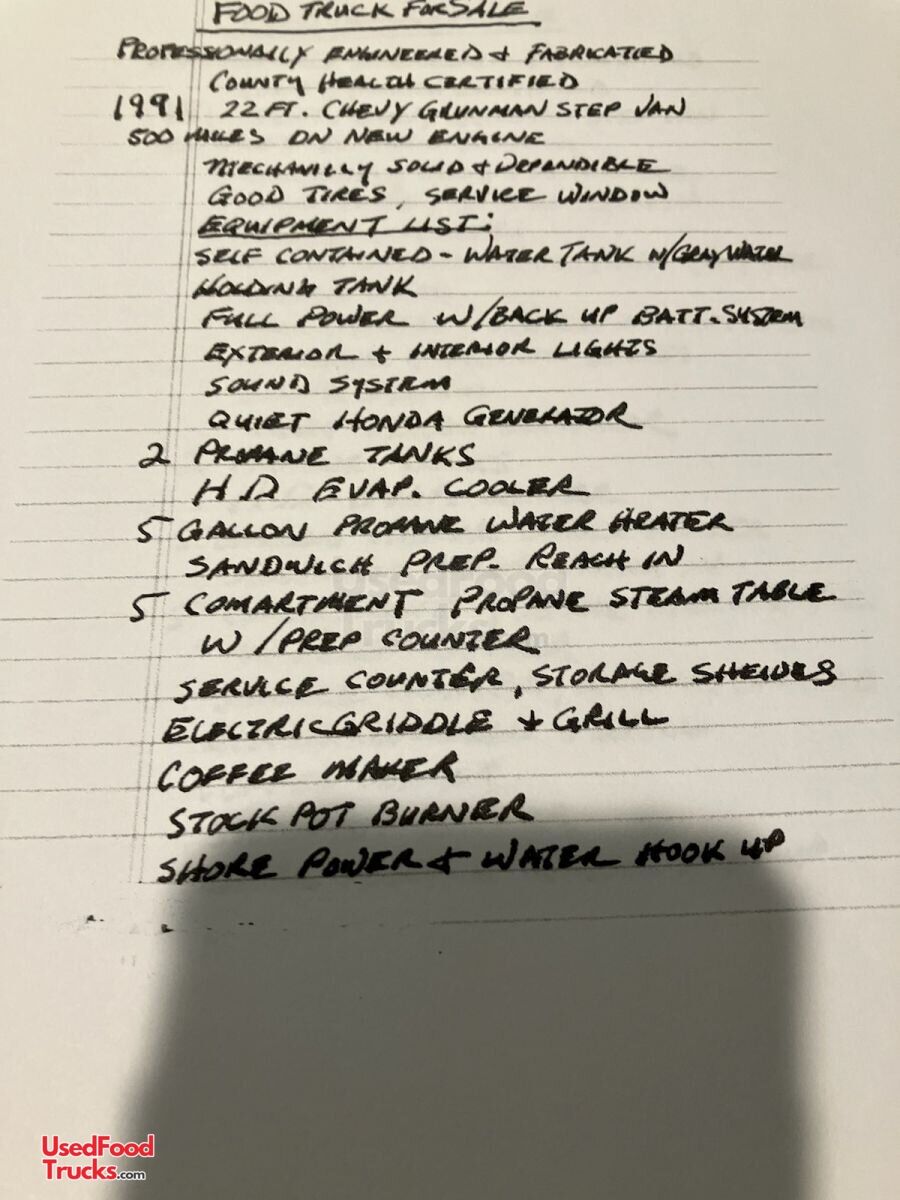 FOOD TRUCK FOR SALE
PROFESSIONALLY ENGINEERED & FABRICATIED
COUNTY HEALTH CERTIFIED
1991 22 FT. CHEVY GRUNMAN STEP VAN
500 MILES ON NEW ENGINE
MECHANILLY SOLID & DEPANDIBLE
GOOD TIRES, SERVICE WINDOW
EQUIPMENT LIST:
SELF CONTAINED - WATER TANK W/GRAY WATER
HOLDING TANK
FULL POWER W/BACK UP BATT. SYSTEM
EXTERIOR & INTERIOR LIGHTS
SOUND SYSTEM
QUIET HONDA GENERATOR
2 PROPANE TANKS
H D EVAP. COOLER
5 GALLON PROPANE WATER HEATER
SANDWICH PREP. REACH IN
5 COMARTMENT PROPANE STEAM TABLE
W/PREP COUNTER
SERVICE COUNTER, STORAGE SHELVES
ELECTRIC GRIDDLE & GRILL
COFFEE MAKER
STOCK POT BURNER
SHORE POWER & WATER HOOK UP
UsedFood
Trucks.com
UsedFood
Trucks.com